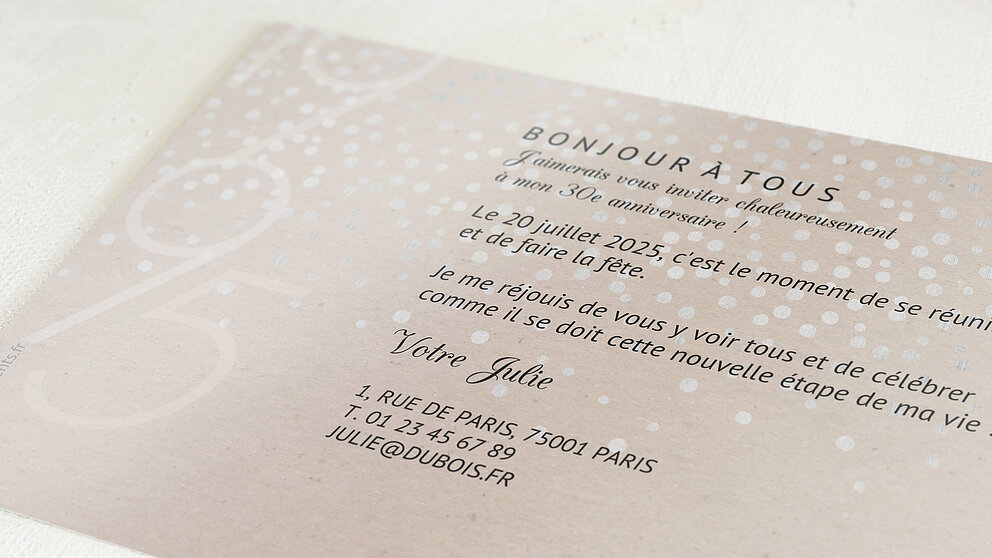 BONJOUR À TOUS
J'aimerais vous inviter chaleureusement
à mon 30e anniversaire !
Le 20 juillet 2025, c'est le moment de se réuni
et de faire la fête.
Je me réjouis de vous y voir tous et de célébrer
comme il se doit cette nouvelle étape de ma vie
Votre Julie
1, RUE DE PARIS, 75001 PARIS
T. 01 23 45 67 89
JULIE@DUBOIS.FR
95
nts.fr